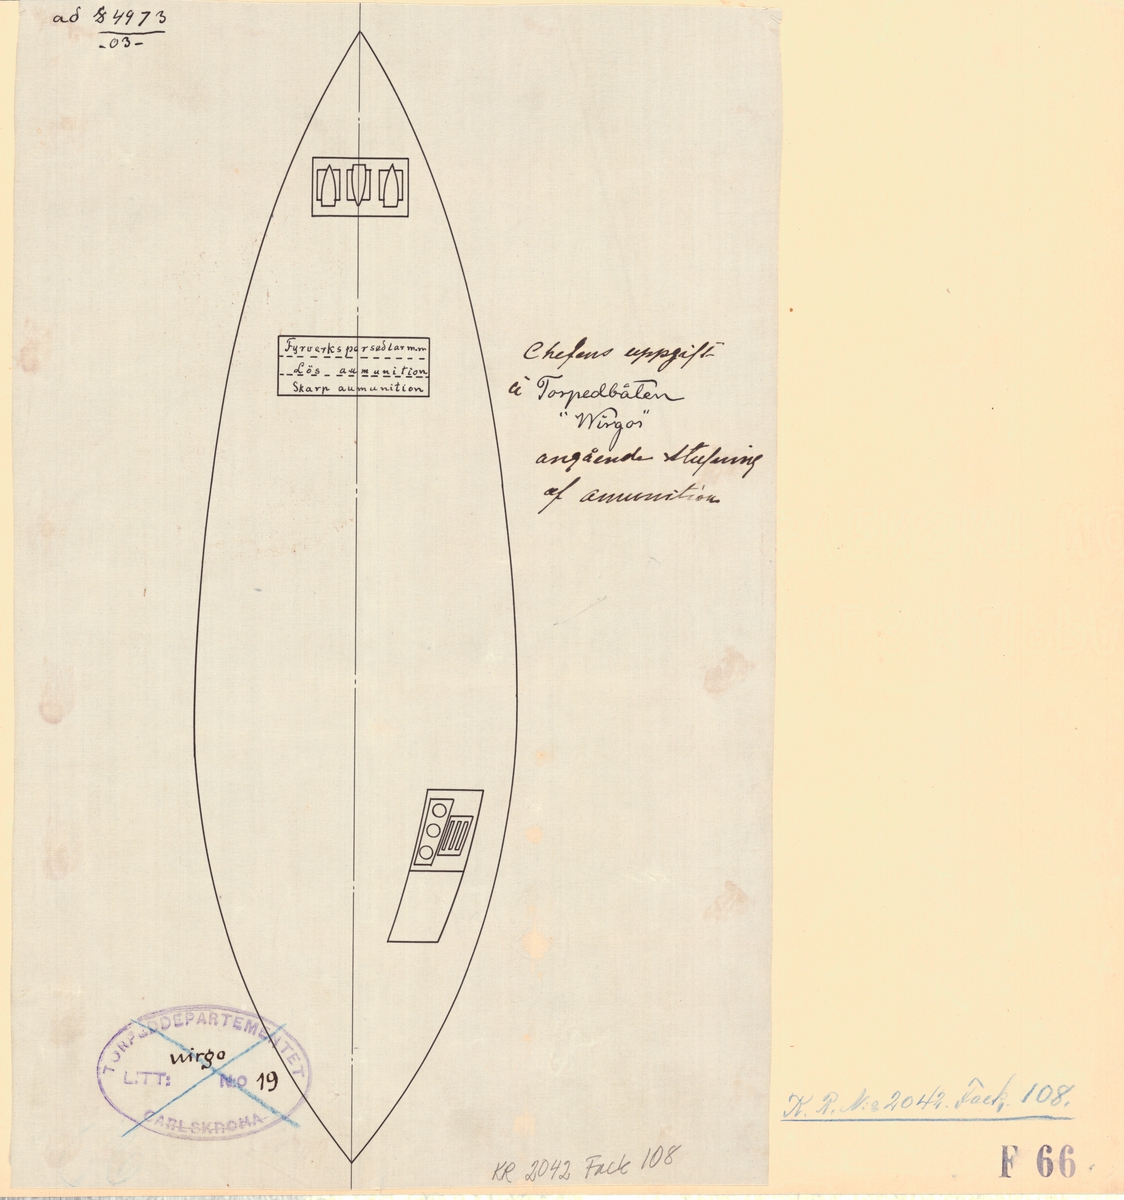 ad 4973
-03-
Fyrverkspersedlar mm
Lös aumunition
Skarp aumunition
Chefens uppgift
å Torpedbåten
"Wirgos"
angående stufning
af amunition
TORPEDDEPARTEMENTET
wirgo
LITT: N:o 19
CARLSKRONA
K. R. N:o 2042. Fack. 108.
KR 2042 Fack 108
F 66